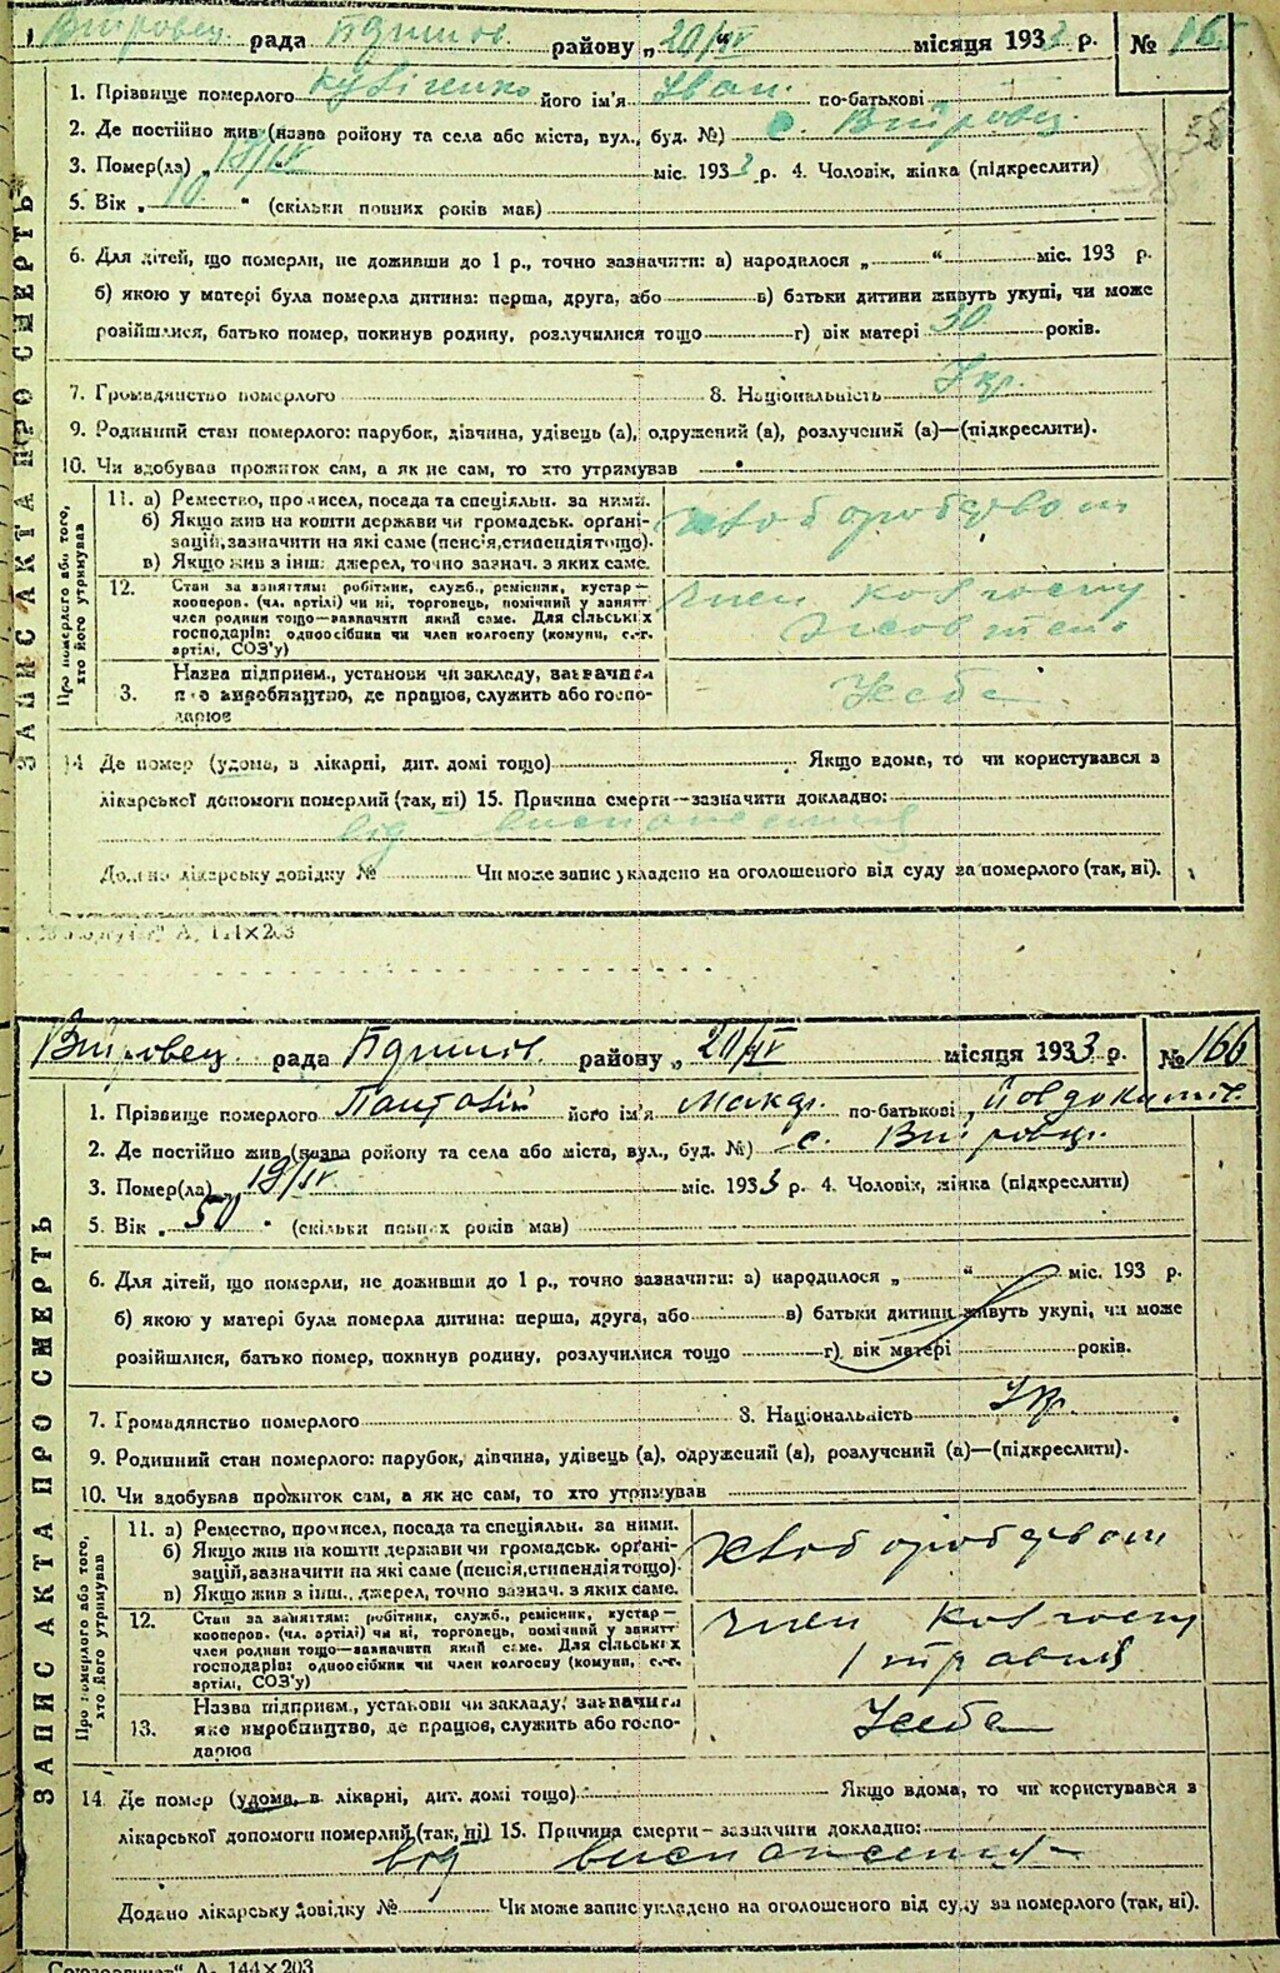 рада району „20/IV місяця 1933 р. № 165
1. Прізвище померлого його ім'я Іван. по-батькові
2. Де постійно жив (назва ройону та села або міста, вул., буд. №) с.
3. Помер(ла) „ /IV міс. 1933 р. 4. Чоловік, жінка (підкреслити)
5. Вік „ 10 “ (скільки повних років мав)
6. Для дітей, що померли, не доживши до 1 р., точно зазначити: а) народилося „ “ міс. 193 р.
б) якою у матері була померла дитина: перша, друга, або в) батьки дитини живуть укупі, чи може
розійшлися, батько помер, покинув родину, розлучилися тощо г) вік матері 30 років.
7. Громадянство померлого 8. Національність Укр.
9. Родинний стан померлого: парубок, дівчина, удівець (а), одружений (а), розлучений (а)—(підкреслити).
10. Чи здобував прожиток сам, а як не сам, то хто утримував
ЗАПИС АКТА ПРО СМЕРТЬ
Про померлого або того, хто його утримував
11. а) Ремество, промисел, посада та спеціяльн. за ними.
б) Якщо жив на кошти держави чи громадськ. орґані-
зацій, зазначити на які саме (пенсія, стипендія тощо).
в) Якщо жив з інш. джерел, точно зазнач. з яких саме.
хлоборобством
12. Стан за заняттям: робітник, служб., ремісник, кустар—
кооперов. (чл. артілі) чи ні, торговець, помічний у занятт
член родини тощо—зазначити який саме. Для сільських
господарів: одноосібник чи член колгоспу (комуни, с.-г.
артілі, СОЗ'у)
член колгоспу
3. Назва підприєм., установи чи закладу, зазначити
яке виробництво, де працює, служить або госпо-
дарює
У себе
14 Де помер (удома, в лікарні, дит. домі тощо) Якщо вдома, то чи користувався з
лікарської допомоги померлий (так, ні) 15. Причина смерти—зазначити докладно:
від виснаження
Додано лікарську довідку № Чи може запис укладено на оголошеного від суду за померлого (так, ні).
рада району „20/IV місяця 1933 р. № 166
1. Прізвище померлого його ім'я Макар. по-батькові „
2. Де постійно жив (назва ройону та села або міста, вул., буд. №) с.
3. Помер(ла) „ 19/IV міс. 1933 р. 4. Чоловік, жінка (підкреслити)
5. Вік „ 50 “ (скільки повних років мав)
6. Для дітей, що померли, не доживши до 1 р., точно зазначити: а) народилося „ “ міс. 193 р.
б) якою у матері була померла дитина: перша, друга, або в) батьки дитини живуть укупі, чи може
розійшлися, батько помер, покинув родину, розлучилися тощо г) вік матері років.
7. Громадянство померлого 8. Національність Укр.
9. Родинний стан померлого: парубок, дівчина, удівець (а), одружений (а), розлучений (а)—(підкреслити).
10. Чи здобував прожиток сам, а як не сам, то хто утримував
ЗАПИС АКТА ПРО СМЕРТЬ
Про померлого або того, хто його утримував
11. а) Ремество, промисел, посада та спеціяльн. за ними.
б) Якщо жив на кошти держави чи громадськ. орґані-
зацій, зазначити на які саме (пенсія, стипендія тощо).
в) Якщо жив з інш., джерел, точно зазнач. з яких саме.
хлоборобством
12. Стан за заняттям: робітник, служб., ремісник, кустар—
кооперов. (чл. артілі) чи ні, торговець, помічний у занятт
член родини тощо—зазначити який саме. Для сільських
господарів: одноосібник чи член колгоспу (комуни, с.-г.
артілі, СОЗ'у)
член колгоспу
1 травня
13. Назва підприєм., установи чи закладу, зазначити
яке виробництво, де працює, служить або госпо-
дарює
У себе
14. Де помер (удома, в лікарні, дит. домі тощо) Якщо вдома, то чи користувався з
лікарської допомоги померлий (так, ні) 15. Причина смерти—зазначити докладно:
від виснаження
Додано лікарську довідку № Чи може запис укладено на оголошеного від суду за померлого (так, ні).
А. 144×203